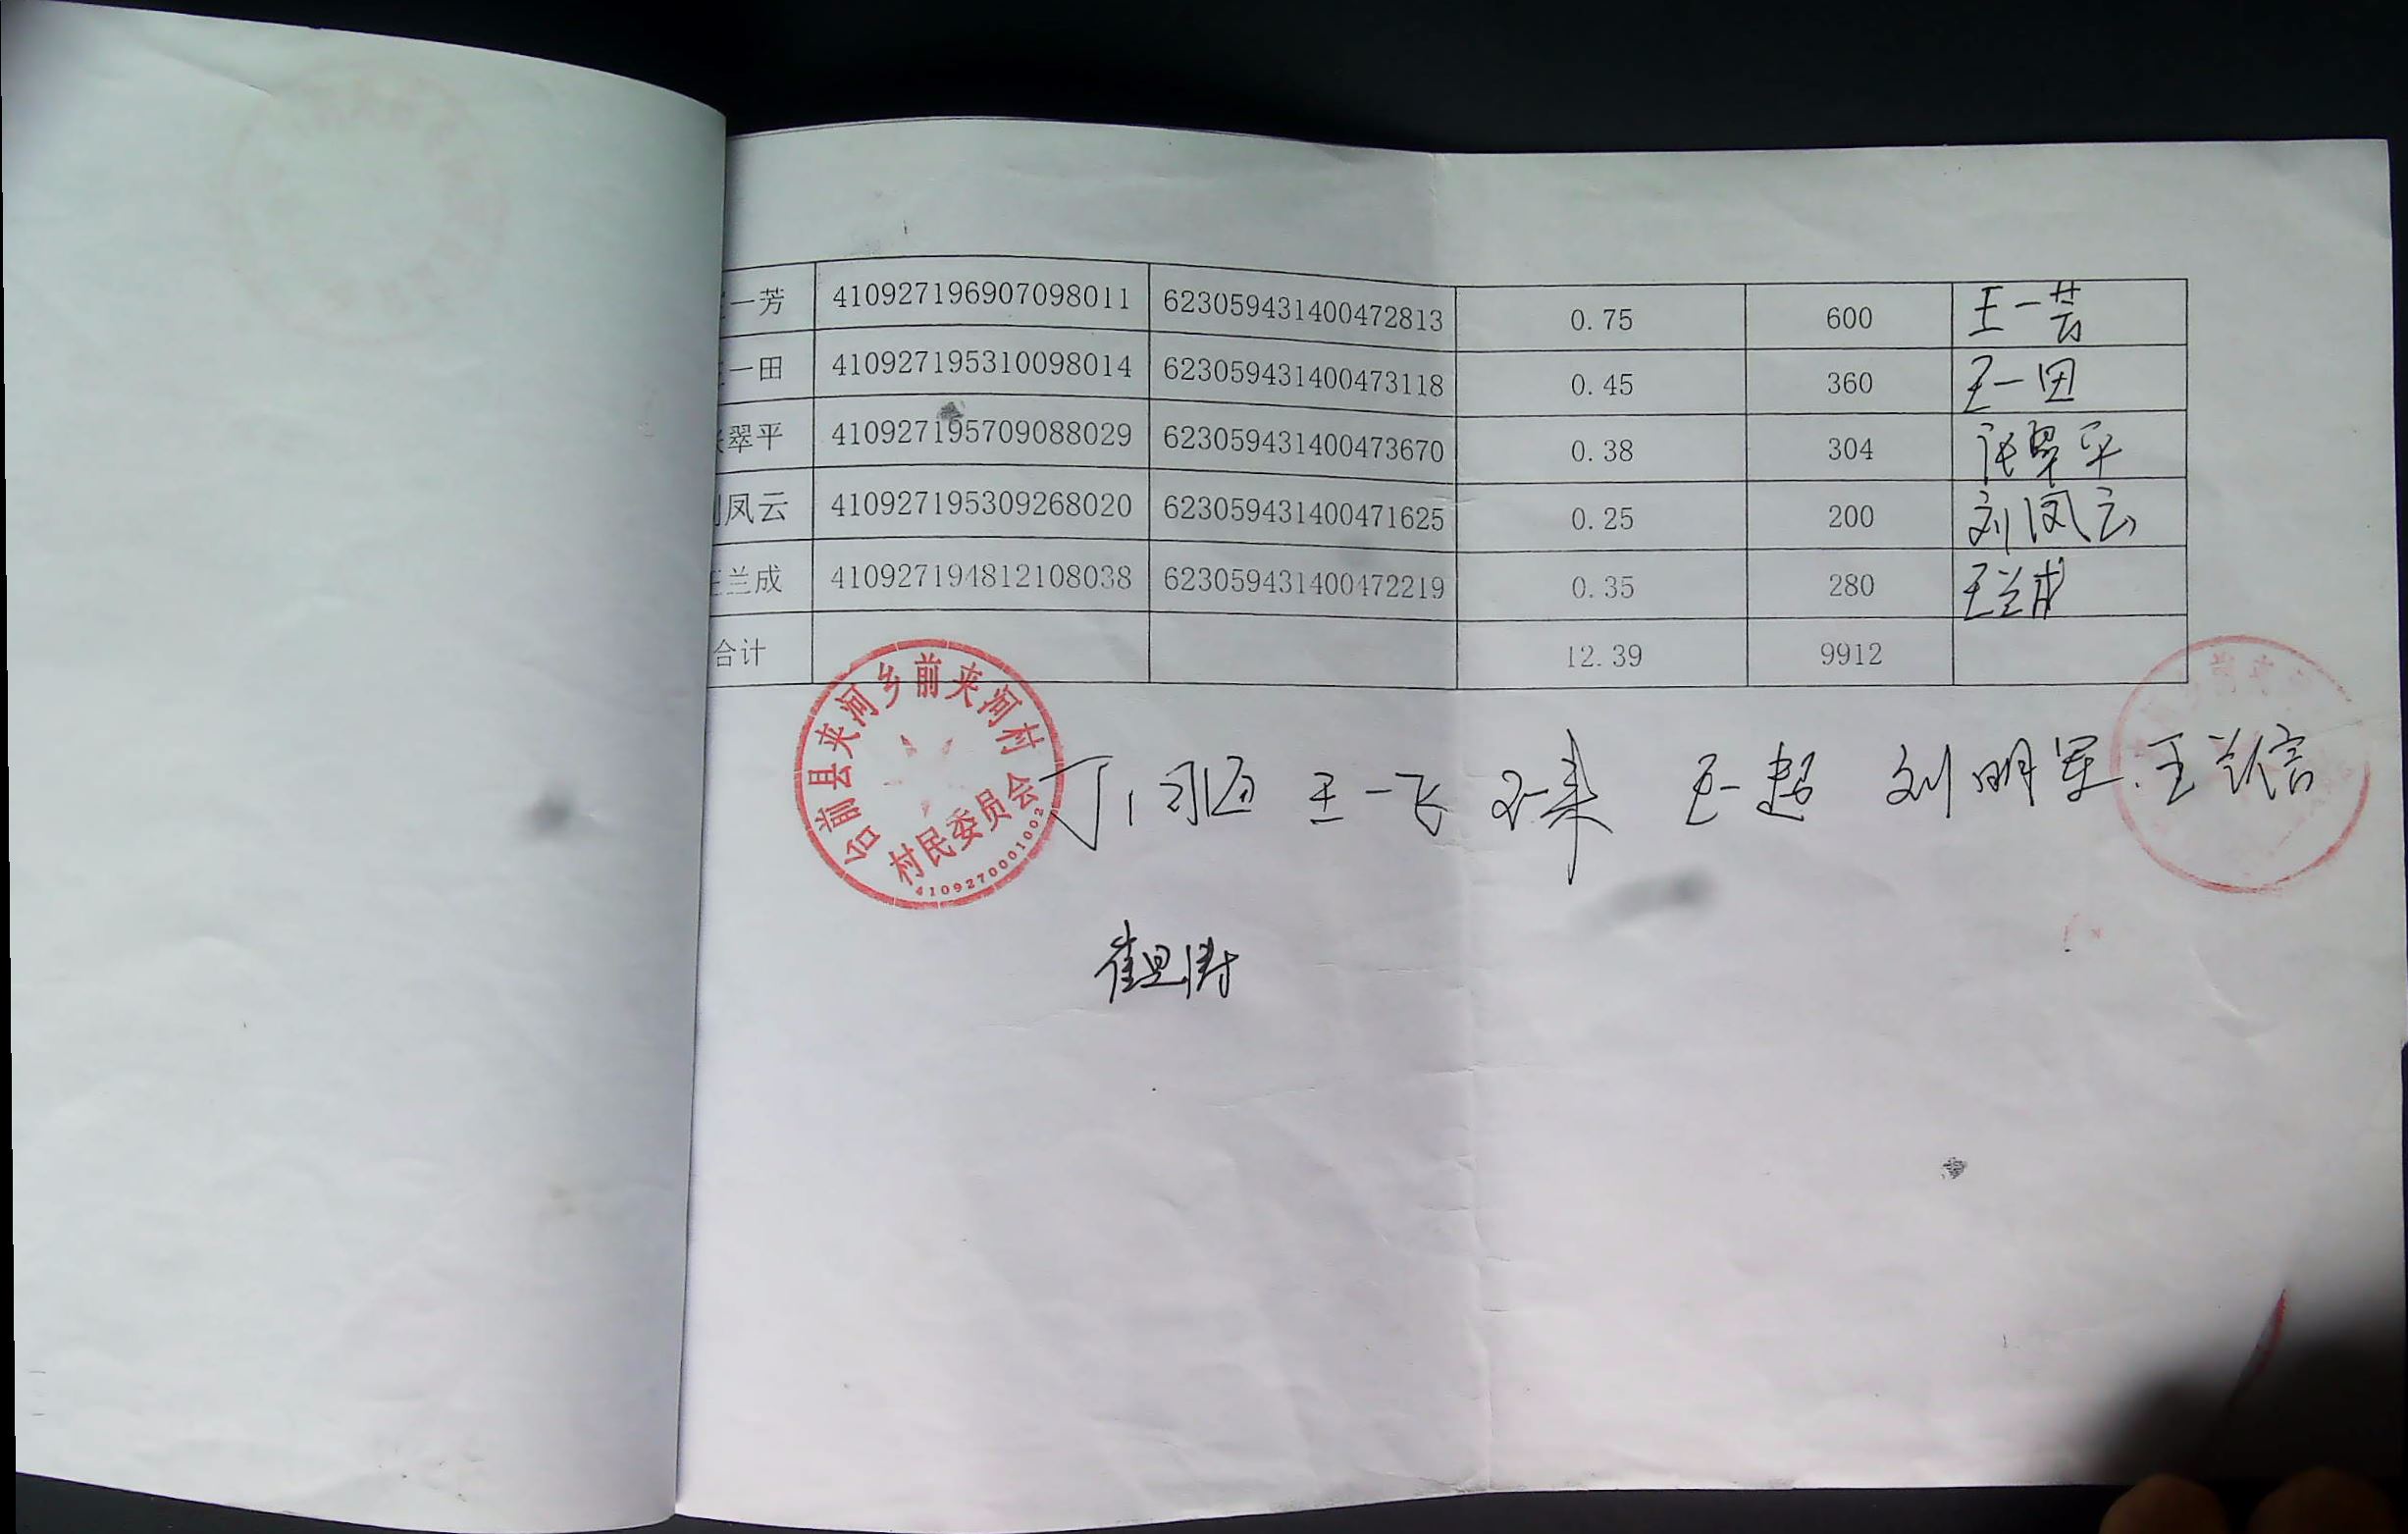 一芳 410927196907098011 623059431400472813 0.75 600 王一芳
一田 410927195310098014 623059431400473118 0.45 360 王一田
翠平 410927195709088029 623059431400473670 0.38 304 张翠平
刘凤云 410927195309268020 623059431400471625 0.25 200 刘凤云
王兰成 410927194812108038 623059431400472219 0.35 280 王兰成
合计 12.39 9912
台前县夹河乡前夹河村
村民委员会
4109270001002
王一飞 王一超 刘明军 王兰信